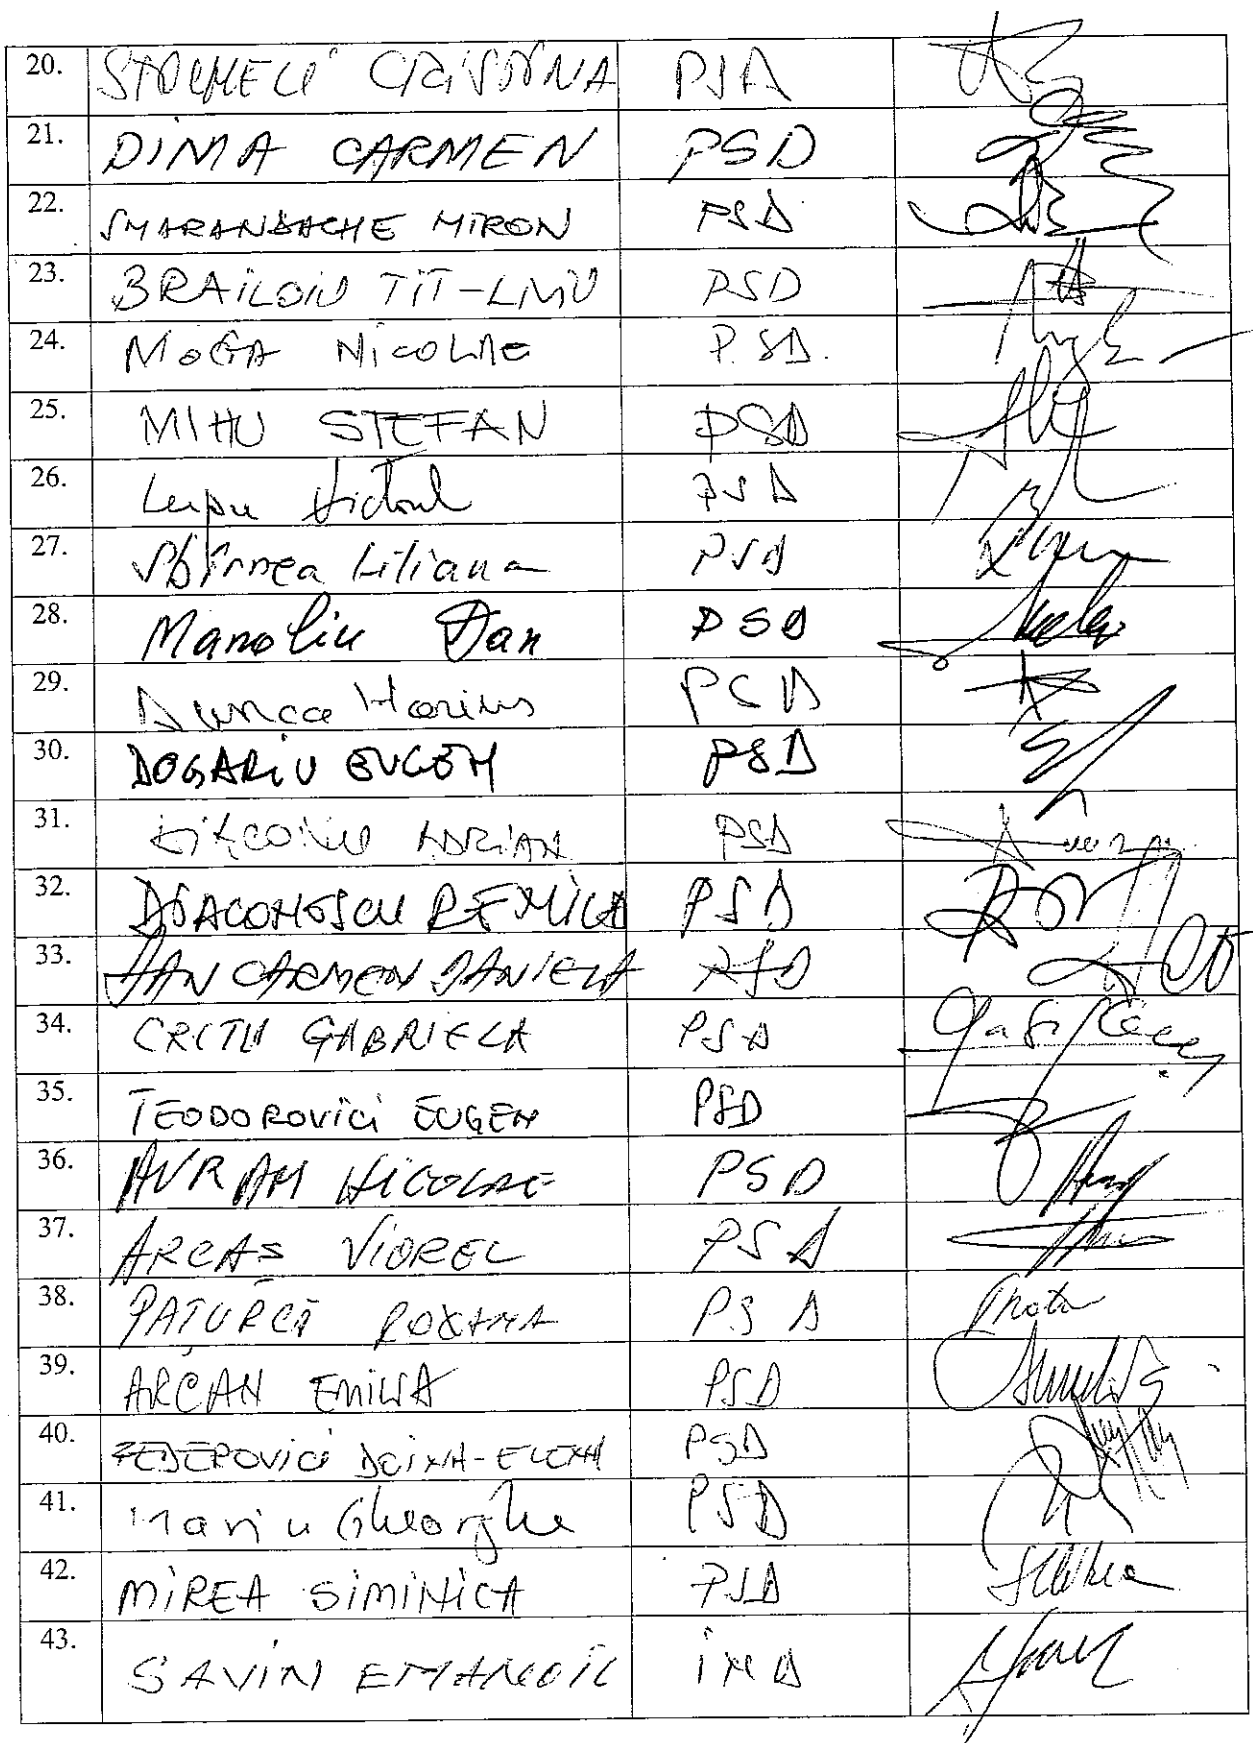 20. PSD
21. DIMA CARMEN PSD
22. SMARANDACHE MIRON PSD
23. BRAILOIU TIT-LIVIU PSD
24. MOGA NICOLAE P.SD.
25. MIHU STEFAN PSD
26. Lupu Victoral PSD
27. Sbîrnea Liliana PSD
28. Manoliu Dan PSD
29. Dunca Marius PSD
30. DOGARIU EUGEN PSD
31. ADRIAN PSD
32. DIACONESCU RENICA PSD
33. DAN CARMEN DANIELA PSD
34. CREȚU GABRIELA PSD
35. TEODOROVICI EUGEN PSD
36. AVRAM NICOLAE PSD
37. ARCAȘ VIOREL PSD
38. PAȚURCĂ ROXANA PSD
39. ARCAN EMILIA PSD
40. FEDEROVICI DOINA-ELENA PSD
41. Marin Gheorghe PSD
42. MIREA SIMINICA PSD
43. SAVIN EMANOIL IND